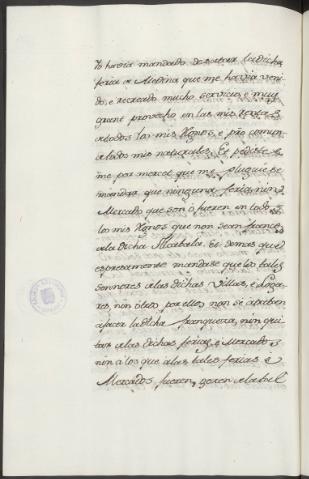 Yo havia mandado desatar la dicha
feria de Medina que me havia veni-
do, e recrecido mucho servicio, e muy
grant provecho en las mis rentas
a todos los mis Regnos, e pro comun
a todos mis naturales. Et pidiole
me por merced que me pluguiese
mandar que ninguna feria, nin
Mercado que son, ó fueren en todos
los mis Regnos que non sean franca
de la dicha Alcabala. Et demas que
espresamente mandase que los tales
Sennores de las dichas Villas, e Loga-
res, nin ótro por ellos non se atreban
a facer la dicha franqueza, nin qui-
tar a las dichas ferias, e Mercados
nin a los que a las tales ferias e
Mercados fueren, gocen de la tal